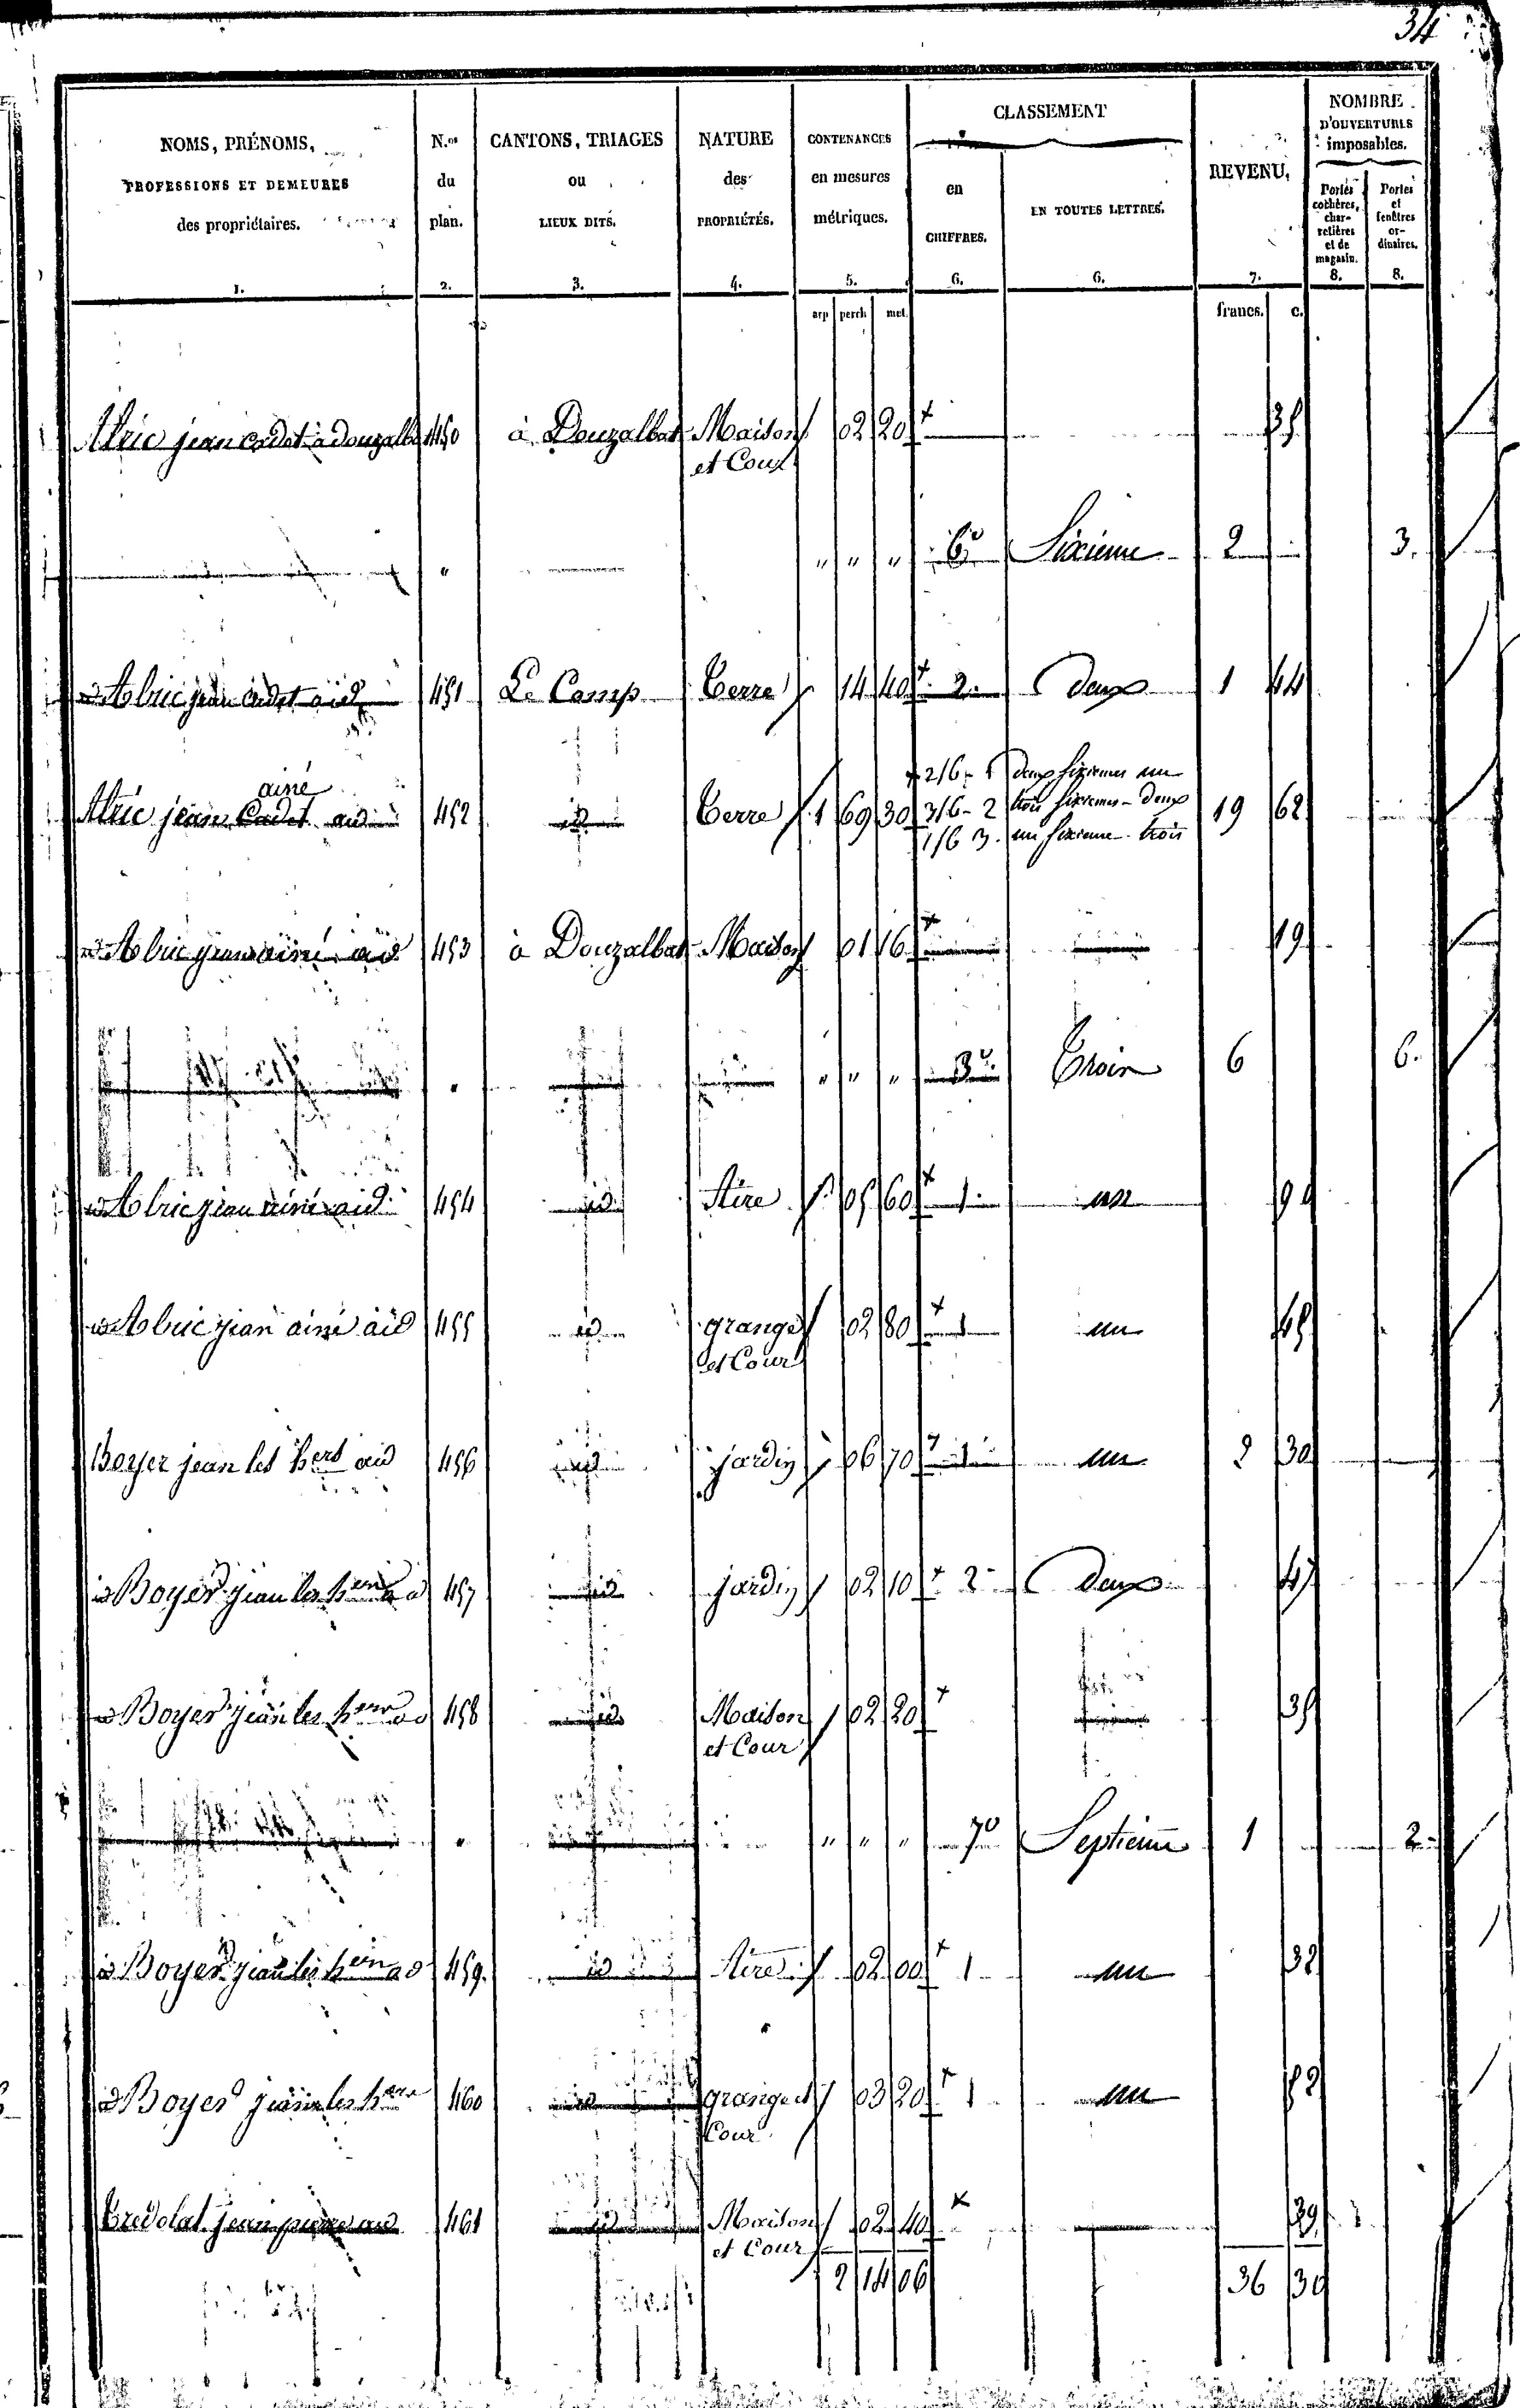 34
NOMS, PRÉNOMS, PROFESSIONS ET DEMEURES des propriétaires. 1.
N.os du plan. 2.
CANTONS, TRIAGES ou LIEUX DITS. 3.
NATURE des PROPRIÉTÉS. 4.
CONTENANCES en mesures métriques. 5.
CLASSEMENT
en CHIFFRES. 6.
EN TOUTES LETTRES. 6.
REVENU. 7.
NOMBRE D'OUVERTURES imposables.
Portes cochères, charretières et de magasin. 8.
Portes et fenêtres ordinaires. 8.
arp perch met. francs. c.
Alric jean cadet à douzalbat 450 à Douzalbat Maison 02 20 + 35
et Cour
" " " " 6e Sixieme 2 3.
Alric jean cadet aid 451 Le Camp Terre 14 40 + 2 Deux 1 44
ainé + 2/6 - 1 deux sixiemes un
Alric jean Cadet aid 452 id Terre 1 69 30 3/6 - 2 trois sixiemes - deux 19 62
1/6 3. un sixieme trois
Alric jean ainé aid 453 à Douzalbat Maison 01 16 + 19
" " " " 3e Trois 6 6.
Alric jean ainé aid 454 id Aire 05 60 + 1 un 90
Alric jean ainé aid 455 id grange 02 80 + 1 un 45
et Cour
Boyer jean les hers aid 456 id jardin 06 70 + 1 un 2 30
Boyer jean les 457 id jardin 02 10 + 2 Deux 47
Boyer jean les 458 id Maison 02 20 + 35
et Cour
" " " " 7e Septieme 1 2
Boyer jean les 459. id Aire 02 00 + 1 un 32
Boyer jean les 460 id grange et 03 20 + 1 un 52
Cour
jean pierre aid 461 id Maison 02 40 + 39
et Cour
2 14 06 36 30